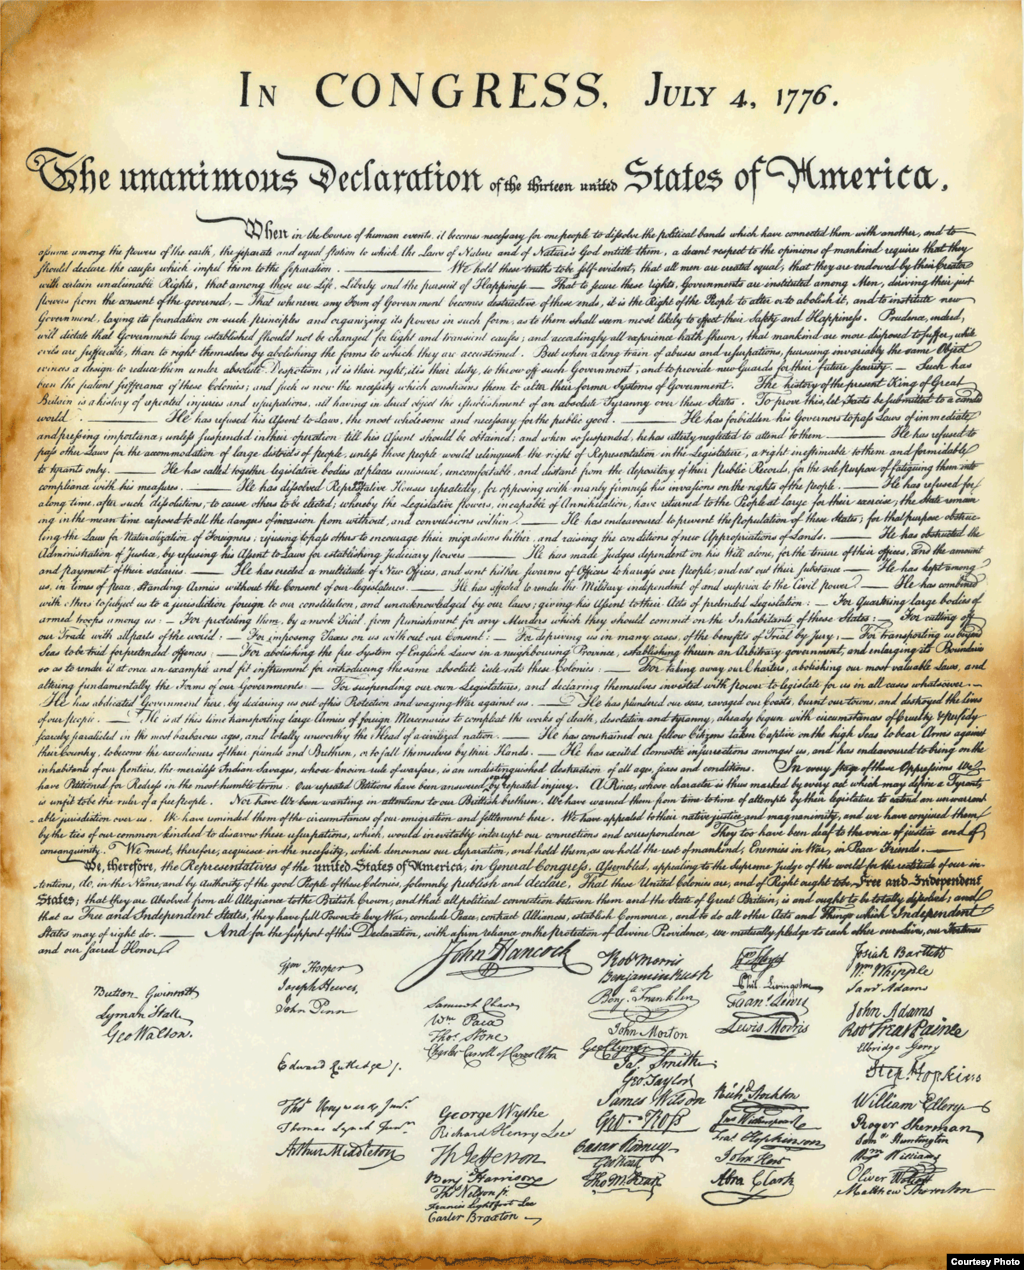 In CONGRESS, July 4, 1776.
The unanimous Declaration of the thirteen united States of America.
When in the Course of human events, it becomes necessary for one people to dissolve the political bands which have connected them with another, and to
assume among the powers of the earth, the separate and equal station to which the Laws of Nature and of Nature's God entitle them, a decent respect to the opinions of mankind requires that they
should declare the causes which impel them to the separation. — We hold these truths to be self-evident, that all men are created equal, that they are endowed by their Creator
with certain unalienable Rights, that among these are Life, Liberty and the pursuit of Happiness.— That to secure these rights, Governments are instituted among Men, deriving their just
powers from the consent of the governed, — That whenever any Form of Government becomes destructive of these ends, it is the Right of the People to alter or to abolish it, and to institute new
Government, laying its foundation on such principles and organizing its powers in such form, as to them shall seem most likely to effect their Safety and Happiness. Prudence, indeed,
will dictate that Governments long established should not be changed for light and transient causes; and accordingly all experience hath shewn, that mankind are more disposed to suffer, while
evils are sufferable, than to right themselves by abolishing the forms to which they are accustomed. But when a long train of abuses and usurpations, pursuing invariably the same Object
evinces a design to reduce them under absolute Despotism, it is their right, it is their duty, to throw off such Government, and to provide new Guards for their future security. — Such has
been the patient sufferance of these Colonies; and such is now the necessity which constrains them to alter their former Systems of Government. The history of the present King of Great
Britain is a history of repeated injuries and usurpations, all having in direct object the establishment of an absolute Tyranny over these States. To prove this, let Facts be submitted to a candid
world. — He has refused his Assent to Laws, the most wholesome and necessary for the public good. — He has forbidden his Governors to pass Laws of immediate
and pressing importance, unless suspended in their operation till his Assent should be obtained; and when so suspended, he has utterly neglected to attend to them. — He has refused to
pass other Laws for the accommodation of large districts of people, unless those people would relinquish the right of Representation in the Legislature, a right inestimable to them and formidable
to tyrants only. — He has called together legislative bodies at places unusual, uncomfortable, and distant from the depository of their Public Records, for the sole purpose of fatiguing them into
compliance with his measures. — He has dissolved Representative Houses repeatedly, for opposing with manly firmness his invasions on the rights of the people. — He has refused for
a long time, after such dissolutions, to cause others to be elected; whereby the Legislative powers, incapable of Annihilation, have returned to the People at large for their exercise; the State remain
ing in the mean time exposed to all the dangers of invasion from without, and convulsions within. — He has endeavoured to prevent the population of these States; for that purpose obstruc
ting the Laws for Naturalization of Foreigners; refusing to pass others to encourage their migrations hither, and raising the conditions of new Appropriations of Lands. — He has obstructed the
Administration of Justice, by refusing his Assent to Laws for establishing Judiciary powers. — He has made Judges dependent on his Will alone, for the tenure of their offices, and the amount
and payment of their salaries. — He has erected a multitude of New Offices, and sent hither swarms of Officers to harrass our people, and eat out their substance. — He has kept among
us, in times of peace, Standing Armies without the Consent of our legislatures. — He has affected to render the Military independent of and superior to the Civil power. — He has combined
with others to subject us to a jurisdiction foreign to our constitution, and unacknowledged by our laws; giving his Assent to their Acts of pretended Legislation: — For Quartering large bodies of
armed troops among us: — For protecting them, by a mock Trial, from punishment for any Murders which they should commit on the Inhabitants of these States: — For cutting off
our Trade with all parts of the world: — For imposing Taxes on us without our Consent: — For depriving us in many cases, of the benefits of Trial by Jury: — For transporting us beyond
Seas to be tried for pretended offences: — For abolishing the free System of English Laws in a neighbouring Province, establishing therein an Arbitrary government, and enlarging its Boundaries
so as to render it at once an example and fit instrument for introducing the same absolute rule into these Colonies: — For taking away our Charters, abolishing our most valuable Laws, and
altering fundamentally the Forms of our Governments: — For suspending our own Legislatures, and declaring themselves invested with power to legislate for us in all cases whatsoever. —
He has abdicated Government here, by declaring us out of his Protection and waging War against us. — He has plundered our seas, ravaged our Coasts, burnt our towns, and destroyed the lives
of our people. — He is at this time transporting large Armies of foreign Mercenaries to compleat the works of death, desolation and tyranny, already begun with circumstances of Cruelty & perfidy
scarcely paralleled in the most barbarous ages, and totally unworthy the Head of a civilized nation. — He has constrained our fellow Citizens taken Captive on the high Seas to bear Arms against
their Country, to become the executioners of their friends and Brethren, or to fall themselves by their Hands. — He has excited domestic insurrections amongst us, and has endeavoured to bring on the
inhabitants of our frontiers, the merciless Indian Savages, whose known rule of warfare, is an undistinguished destruction of all ages, sexes and conditions. In every stage of these Oppressions We
have Petitioned for Redress in the most humble terms: Our repeated Petitions have been answered only by repeated injury. A Prince, whose character is thus marked by every act which may define a Tyrant,
is unfit to be the ruler of a free people. Nor have We been wanting in attentions to our British brethren. We have warned them from time to time of attempts by their legislature to extend an unwarrant
able jurisdiction over us. We have reminded them of the circumstances of our emigration and settlement here. We have appealed to their native justice and magnanimity, and we have conjured them
by the ties of our common kindred to disavow these usurpations, which, would inevitably interrupt our connections and correspondence They too have been deaf to the voice of justice and of
consanguinity. We must, therefore, acquiesce in the necessity, which denounces our Separation, and hold them, as we hold the rest of mankind, Enemies in War, in Peace Friends. —
We, therefore, the Representatives of the united States of America, in General Congress, Assembled, appealing to the Supreme Judge of the world for the rectitude of our in-
tentions, do, in the Name, and by Authority of the good People of these Colonies, solemnly publish and declare, That these United Colonies are, and of Right ought to be Free and Independent
States; that they are Absolved from all Allegiance to the British Crown, and that all political connection between them and the State of Great Britain, is and ought to be totally dissolved; and
that as Free and Independent States, they have full Power to levy War, conclude Peace, contract Alliances, establish Commerce, and to do all other Acts and Things which Independent
States may of right do. — And for the support of this Declaration, with a firm reliance on the protection of divine Providence, we mutually pledge to each other our Lives, our Fortunes
and our sacred Honor.
John Hancock
Button Gwinnett
Lyman Hall
Geo Walton.
Wm Hooper
Joseph Hewes,
John Penn
Edward Rutledge /.
Thos Heyward Junr.
Thomas Lynch Junr.
Arthur Middleton
Samuel Chase
Wm Paca
Thos Stone
Charles Carroll of Carrollton
George Wythe
Richard Henry Lee
Th Jefferson
Benj Harrison
Thos Nelson jr.
Francis Lightfoot Lee
Carter Braxton
Robt Morris
Benjamin Rush
Benja Franklin
John Morton
Geo Clymer
Jas Smith
Geo Taylor
James Wilson
Geo. Ross
Caesar Rodney
Geo Read
Tho M:Kean
Phil. Livingston
Frans Lewis
Lewis Morris
Richd Stockton
Jno Witherspoon
Fras Hopkinson
John Hart
Abra Clark
Josiah Bartlett
Wm Whipple
Saml Adams
John Adams
Robt Treat Paine
Elbridge Gerry
Step. Hopkins
William Ellery
Roger Sherman
Saml Huntington
Wm Williams
Oliver Wolcott
Matthew Thornton
Courtesy Photo